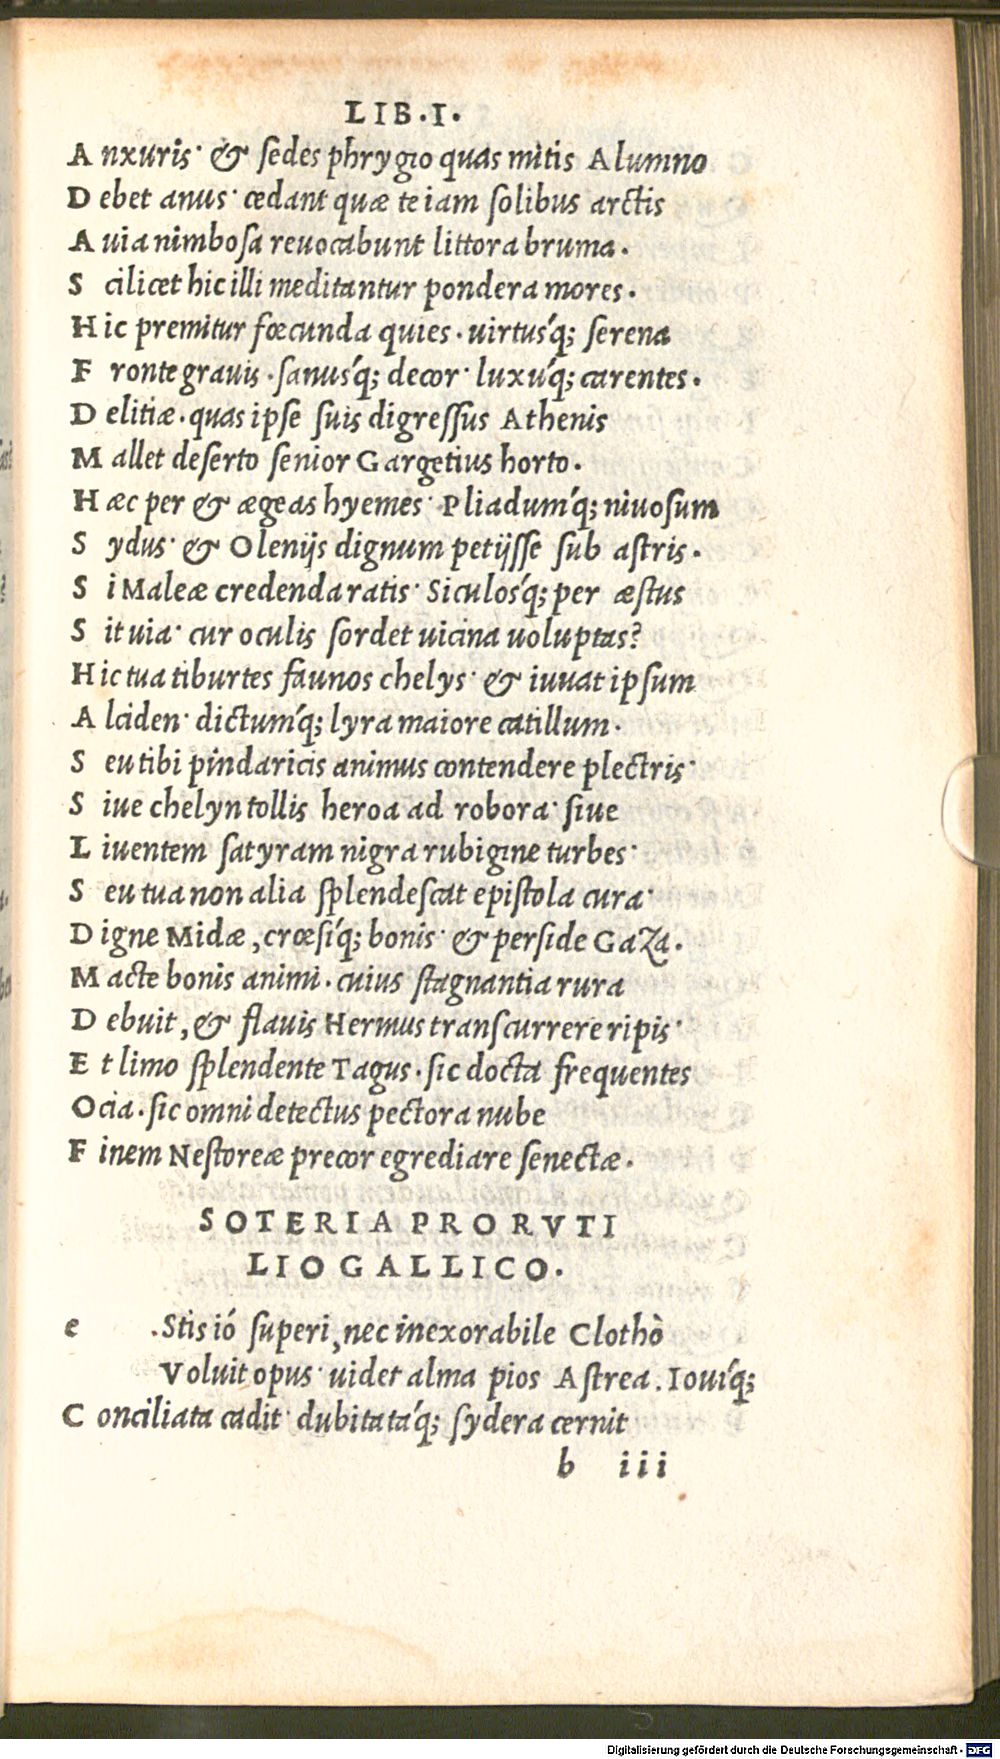 LIB.I.
Anxuris· & sedes phrygio quas mitis Alumno
Debet anus· cedant quæ te iam solibus arctis
Auia nimbosa reuocabunt littora bruma.
Scilicet hic illi meditantur pondera mores.
Hic premitur fœcunda quies. uirtusq́; serena
Fronte grauis. sanusq́; decor· luxuq́; carentes.
Delitiæ. quas ipse suis digressus Athenis
Mallet deserto senior Gargetius horto.
Hæc per & ægeas hyemes· Pliadumq́; niuosum
Sydus· & Olenijs dignum petijsse sub astris.
Si Maleæ credenda ratis· Siculosq́; per æstus
Sit uia· cur oculis sordet uicina uoluptas?
Hic tua tiburtes faunos chelys· & iuuat ipsum
Alciden· dictumq́; lyra maiore catillum.
Seu tibi pindaricis animus contendere plectris·
Siue chelyn tollis heroa ad robora· siue
Liuentem satyram nigra rubigine turbes·
Seu tua non alia splendescat epistola cura·
Digne Midæ, crœsiq́; bonis· & perside GaZa.
Macte bonis animi. cuius stagnantia rura
Debuit, & flauis Hermus transcurrere ripis·
Et limo splendente Tagus. sic docta frequentes
Ocia. sic omni detectus pectora nube
Finem Nestoreæ precor egrediare senectæ.
SOTERIA PRO RVTI
LIO GALLICO.
e .Stis ió superi, nec inexorabile Clothò
Voluit opus· uidet alma pios Astrea. Iouiq́;
Conciliata cadit· dubitataq́; sydera cernit
b iii
Digitalisierung gefördert durch die Deutsche Forschungsgemeinschaft - DFG